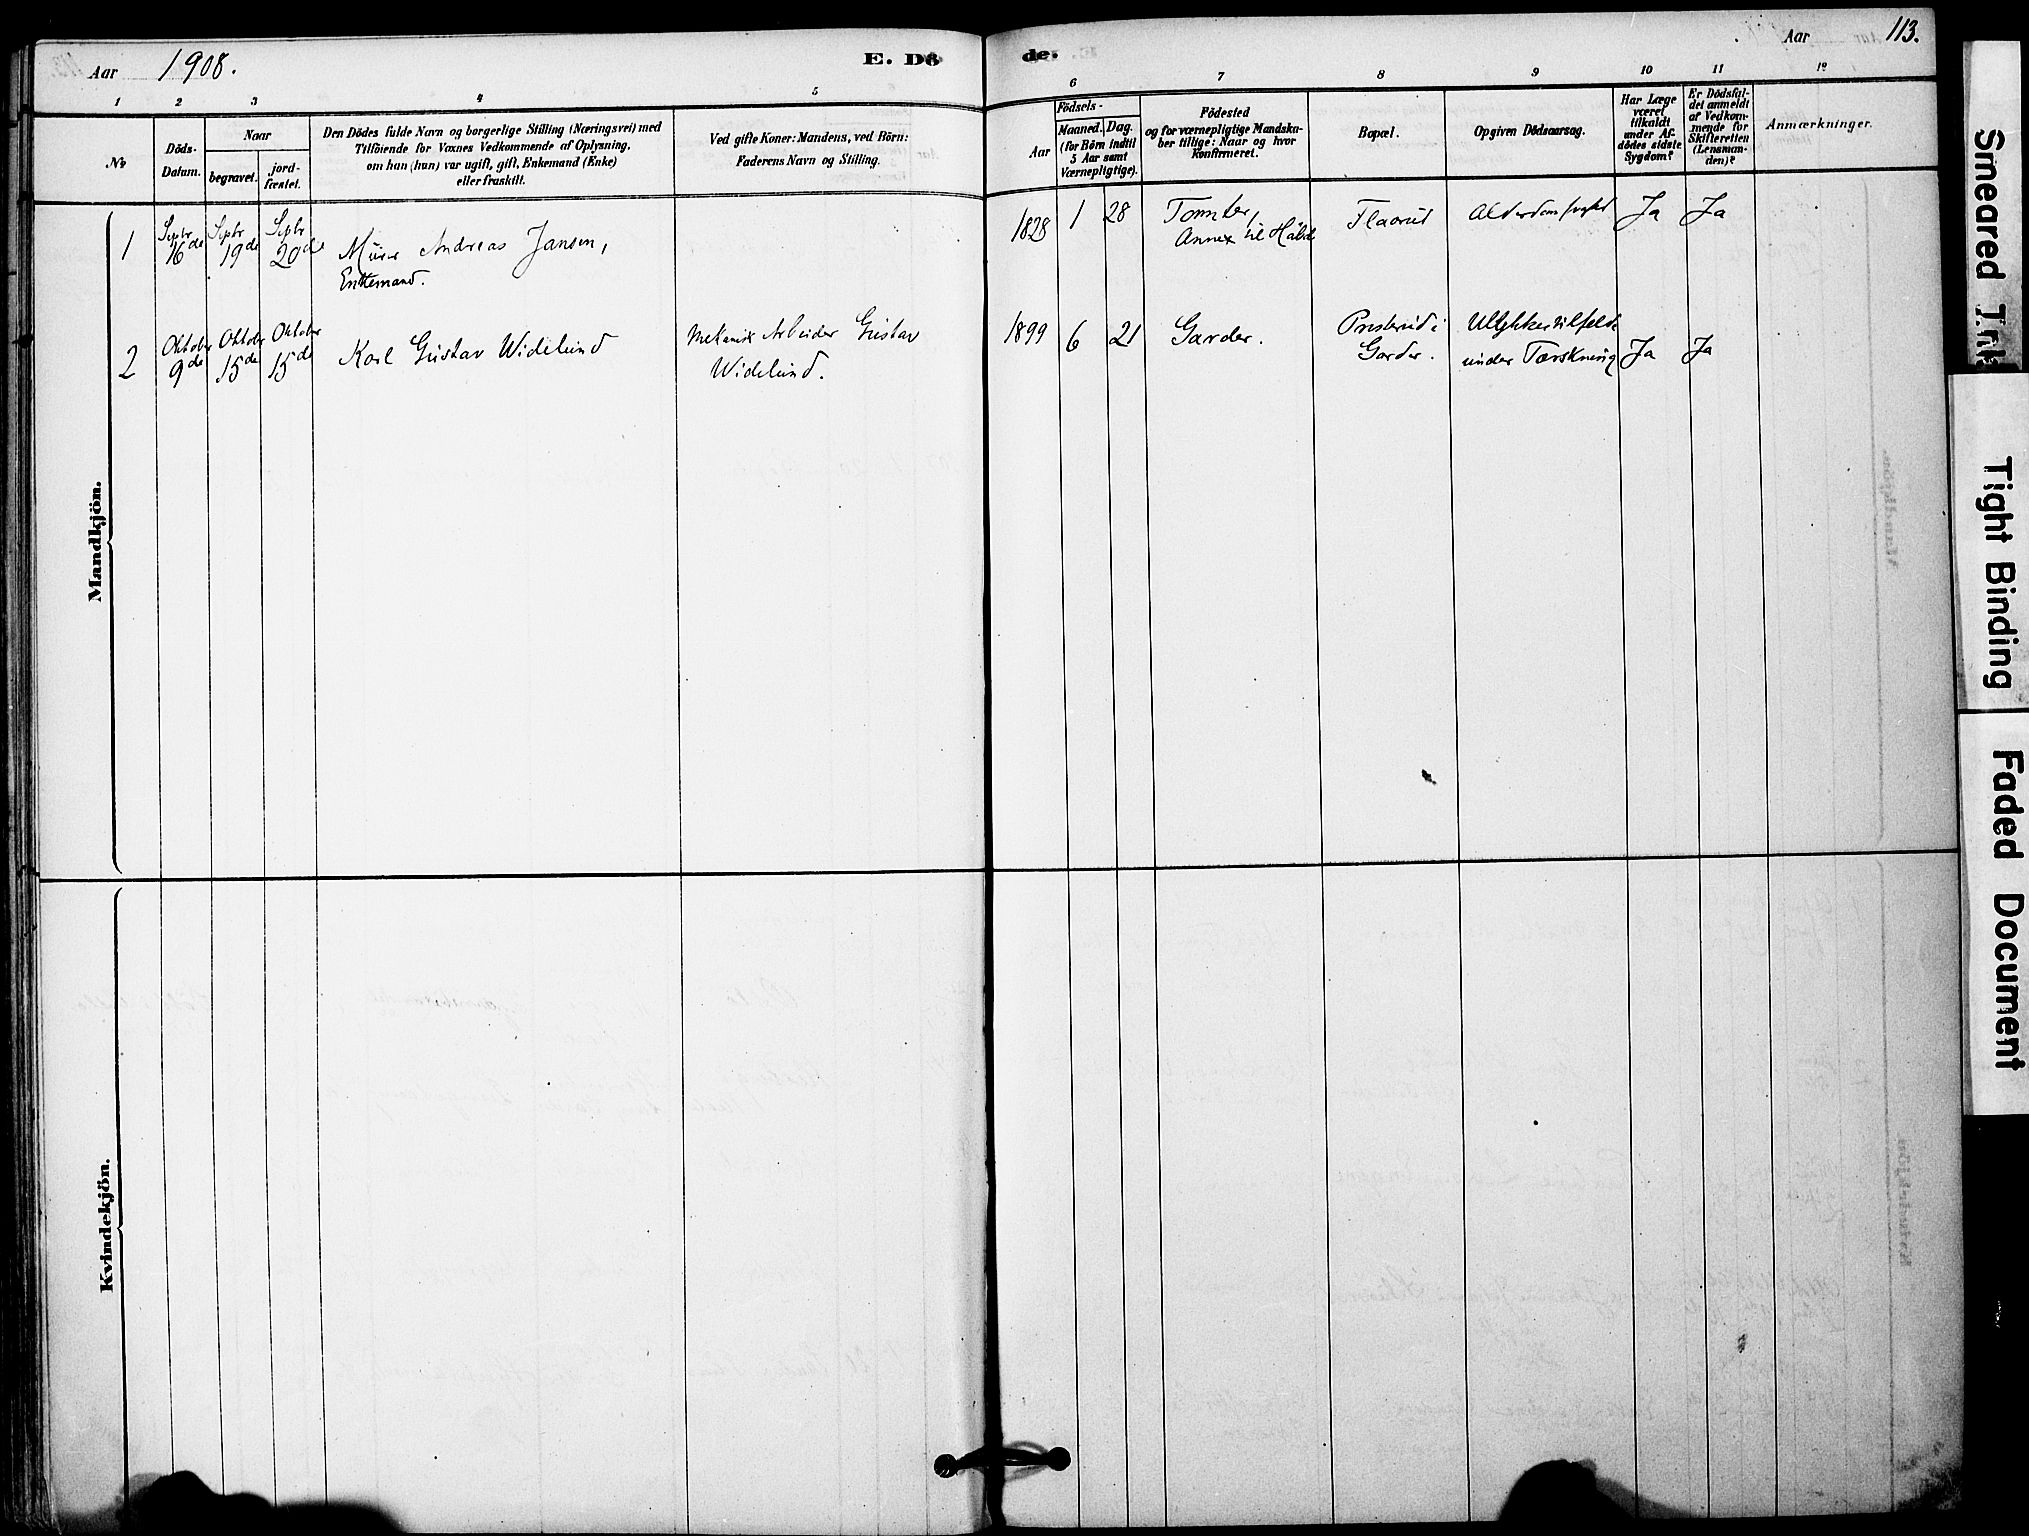 Aar 1908.
E. Dö
de.
Aar
113.
1 2 3 4 5
6 7 8 9 10 11 12
No
Döds-
Datum.
Naar
begravet.
jord-
fæstet.
Den Dödes fulde Navn og borgerlige Stilling (Næringsvei) med
Tilföiende for Voxnes Vedkommende af Oplysning,
om han (hun) var ugift, gift, Enkemand (Enke)
eller fraskilt.
Ved gifte Koner: Mandens, ved Börn:
Faderens Navn og Stilling.
Födsels-
Aar
Maaned. Dag.
(for Börn indtil
5 Aar samt
Værnepligtige).
Födested
og for værnepligtige Mandska-
ber tillige: Naar og hvor
Konfirmeret.
Bopæl.
Opgiven Dödsaarsag.
Har Læge
været
tilkaldt
under Af-
dödes sidste
Sygdom?
Er Dödsfal-
det anmeldt
af Vedkom-
mende for
Skifteretten
(Lensman-
den)?
Anmærkninger.
Mandkjön.
1
Septbr
16de
Septbr
19de
Septbr
20de
Murer Andreas Jansen,
Enkemand.
1828 1 28
Tomter,
Annex til Häböl
Flaarud
Alderdomssvaghed
Ja Ja
2
Oktober
9de
Oktober
15de
Oktober
15de
Karl Gustav Widelund
Mekanisk Arbeider Gustav
Widelund.
1899 6 21
Garder.
Presterud i
Garder.
Ulykkestilfelde
under Tærskning
Ja Ja
Kvindekjön.
Smeared Ink
Tight Binding
Faded Document